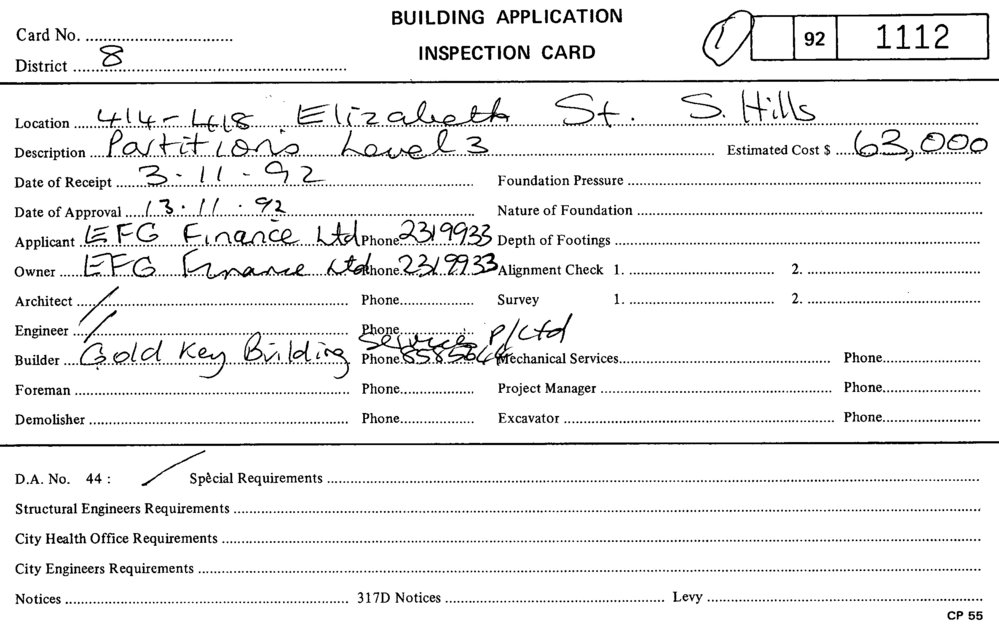 BUILDING APPLICATION
INSPECTION CARD
Card No.
District 8
1 92 1112
Location 414-418 Elizabeth St. S. Hills
Description Partitions Level 3 Estimated Cost $ 63,000
Date of Receipt 3.11.92 Foundation Pressure
Date of Approval 13.11.92 Nature of Foundation
Applicant EFG Finance Ltd Phone 2319933 Depth of Footings
Owner EFG Finance Ltd Phone 2319933 Alignment Check 1. 2.
Architect / Phone Survey 1. 2.
Engineer / Phone
Builder Gold Key Building Services P/Ltd Phone Mechanical Services Phone
Foreman Phone Project Manager Phone
Demolisher Phone Excavator Phone
D.A. No. 44 : / Special Requirements
Structural Engineers Requirements
City Health Office Requirements
City Engineers Requirements
Notices 317D Notices Levy
CP 55